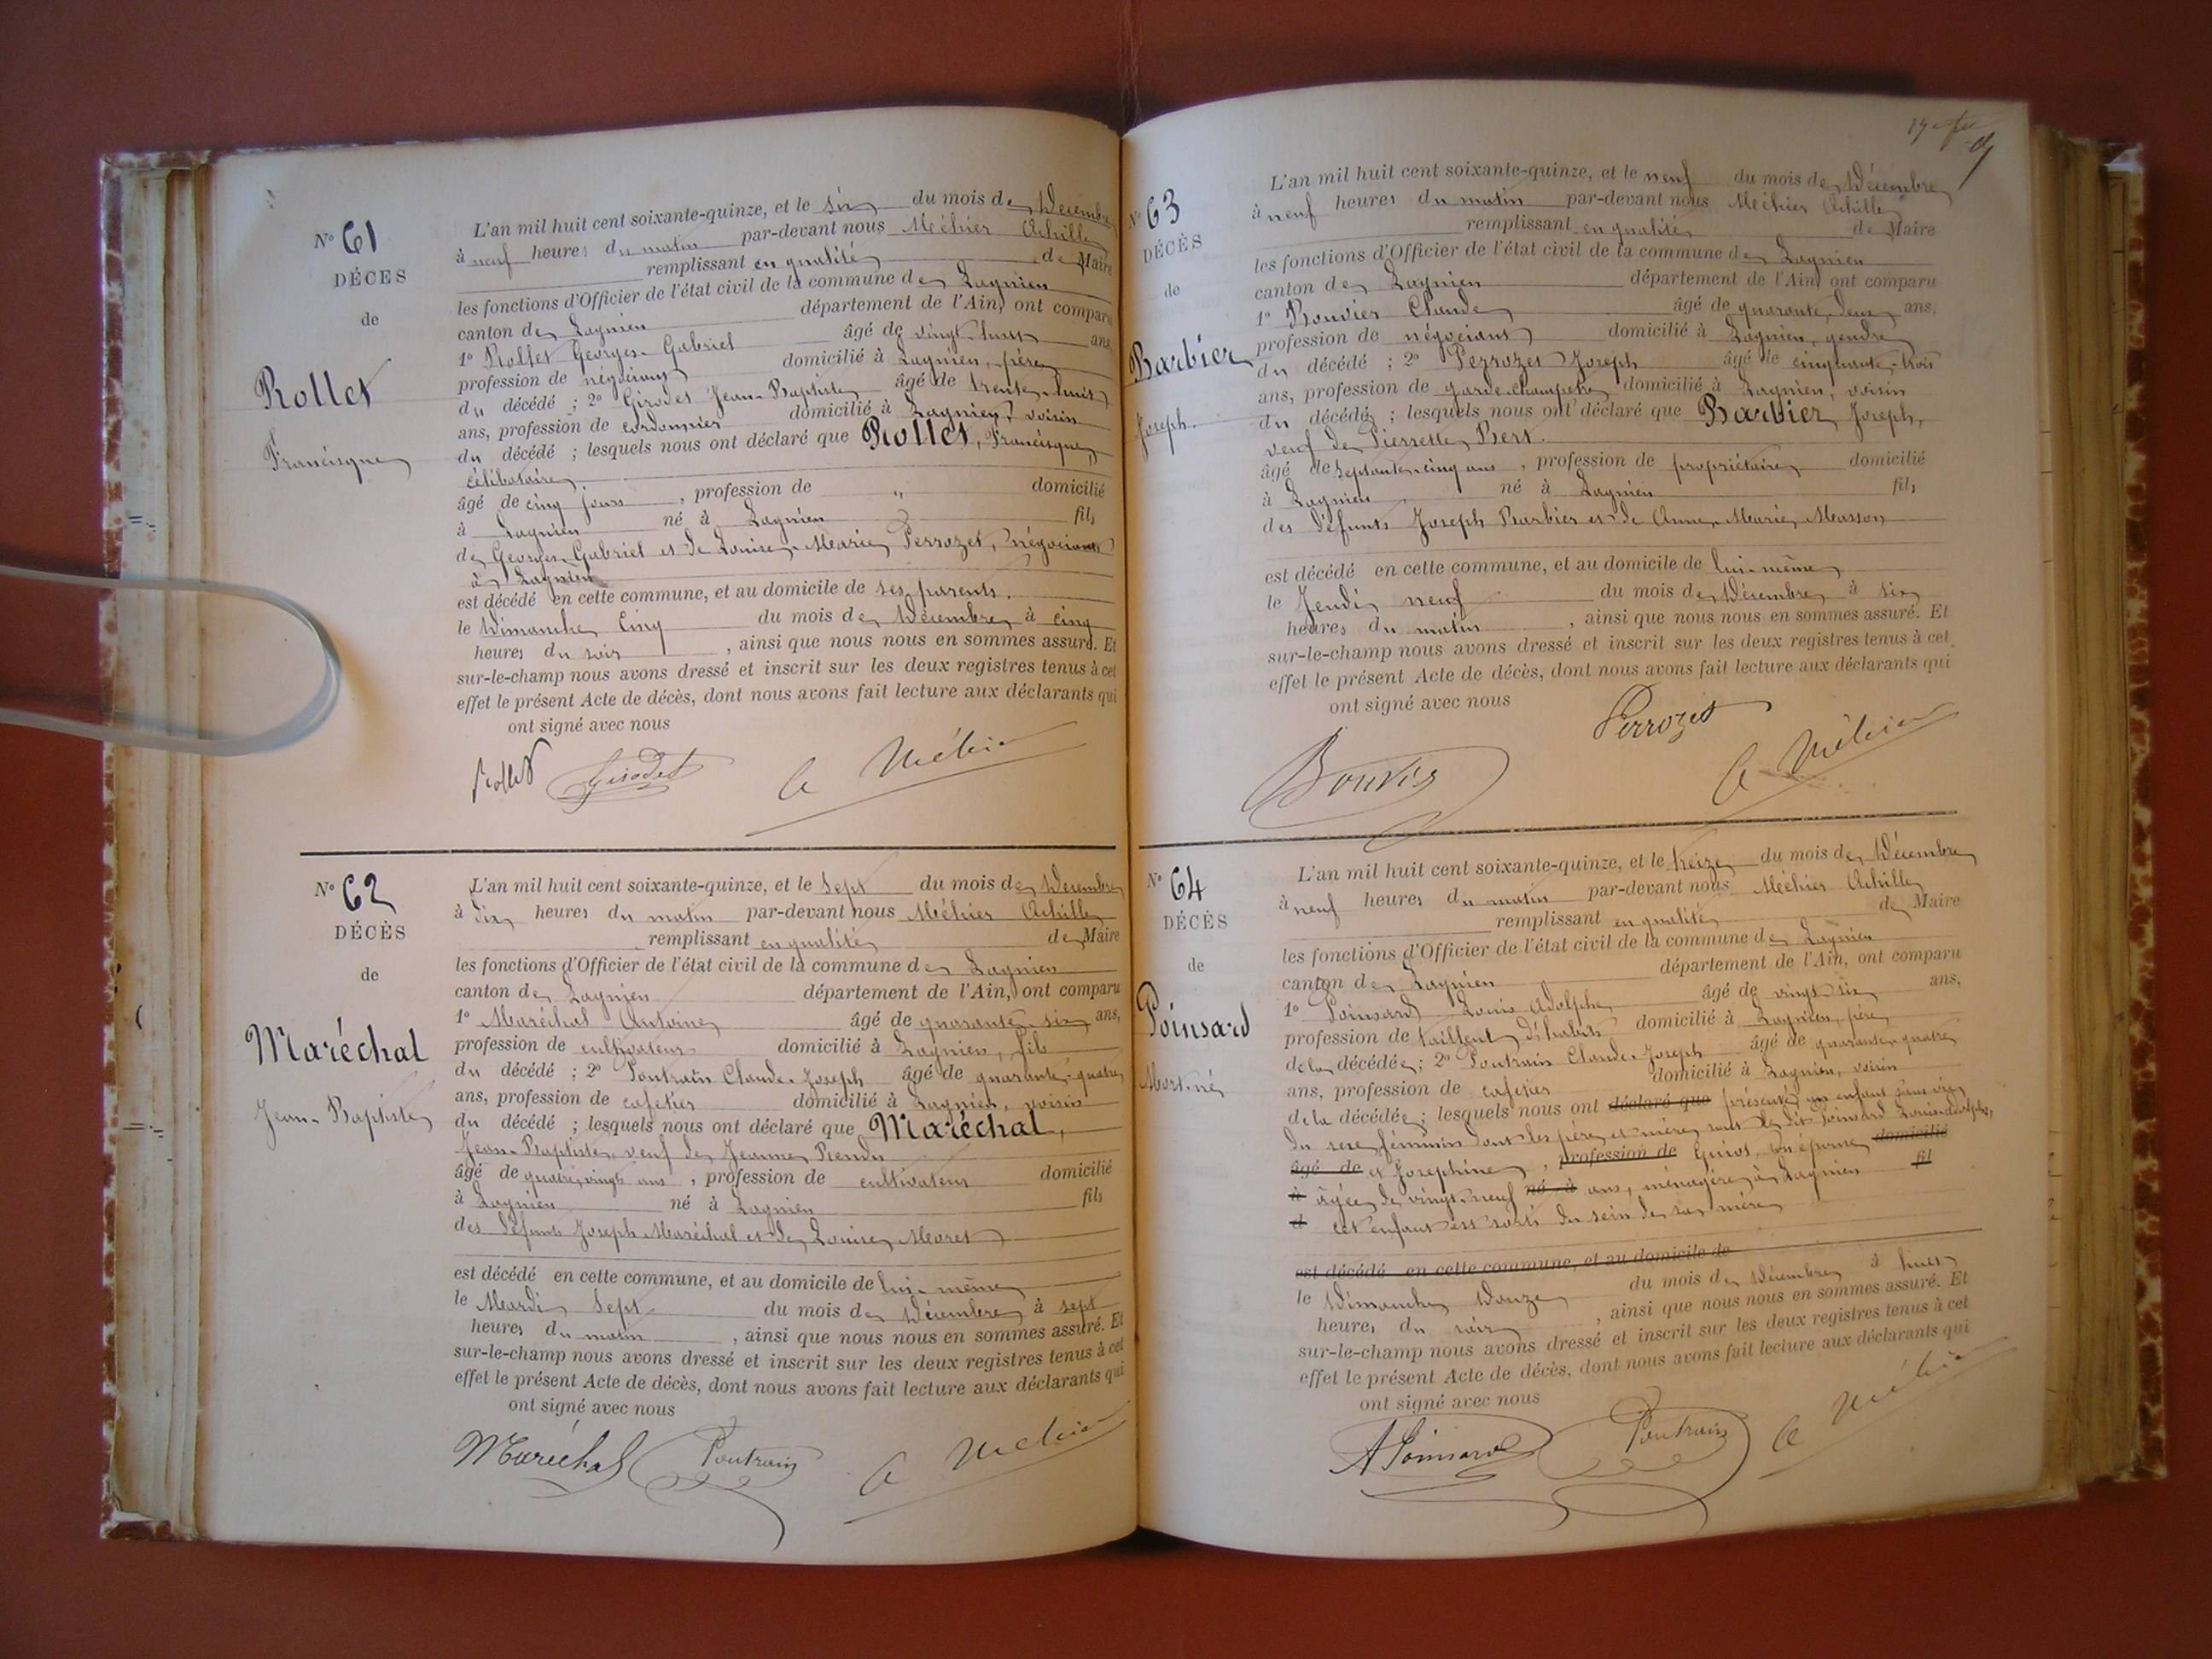 N° 61
DÉCÈS
de
Rollet
Francisque
L'an mil huit cent soixante-quinze, et le six du mois de Décembre
à neuf heures du matin par-devant nous Méhier Achille
remplissant en qualité de Maire
les fonctions d'Officier de l'état civil de la commune de Lagnieu
canton de Lagnieu département de l'Ain, ont comparu
1° Rollet Georges-Gabriel âgé de vingt-huit ans,
profession de négociant domicilié à Lagnieu, père
du décédé ; 2° Girodet Jean-Baptiste âgé de trente-huit
ans, profession de cordonnier domicilié à Lagnieu, voisin
du décédé ; lesquels nous ont déclaré que Rollet, Francisque,
célibataire,
âgé de cinq jours, profession de " domicilié
à Lagnieu né à Lagnieu fils
de Georges-Gabriel et de Louise-Marie Perrozet, négociants
à Lagnieu
est décédé en cette commune, et au domicile de ses parents.
le Dimanche Cinq du mois de Décembre à cinq
heures du soir, ainsi que nous nous en sommes assuré. Et
sur-le-champ nous avons dressé et inscrit sur les deux registres tenus à cet
effet le présent Acte de décès, dont nous avons fait lecture aux déclarants qui
ont signé avec nous
Rollet Girodet A Méhier
N° 62
DÉCÈS
de
Maréchal
Jean-Baptiste
L'an mil huit cent soixante-quinze, et le Sept du mois de Décembre
à dix heures du matin par-devant nous Méhier Achille
remplissant en qualité de Maire
les fonctions d'Officier de l'état civil de la commune de Lagnieu
canton de Lagnieu département de l'Ain, ont comparu
1° Maréchal Antoine âgé de quarante-six ans,
profession de cultivateur domicilié à Lagnieu, fils
du décédé ; 2° Poutrain Claude-Joseph âgé de quarante-quatre
ans, profession de cafetier domicilié à Lagnieu, voisin
du décédé ; lesquels nous ont déclaré que Maréchal,
Jean-Baptiste, veuf de Jeanne Rendu
âgé de quatre-vingts ans, profession de cultivateur domicilié
à Lagnieu né à Lagnieu fils
des défunts Joseph Maréchal et de Louise Moret
est décédé en cette commune, et au domicile de lui-même
le Mardi Sept du mois de Décembre à sept
heures du matin, ainsi que nous nous en sommes assuré. Et
sur-le-champ nous avons dressé et inscrit sur les deux registres tenus à cet
effet le présent Acte de décès, dont nous avons fait lecture aux déclarants qui
ont signé avec nous
Maréchal Poutrain A Méhier
N° 63
DÉCÈS
de
Barbier
Joseph.
L'an mil huit cent soixante-quinze, et le neuf du mois de Décembre
à neuf heures du matin par-devant nous Méhier Achille
remplissant en qualité de Maire
les fonctions d'Officier de l'état civil de la commune de Lagnieu
canton de Lagnieu département de l'Ain, ont comparu
1° Bouvier Claude âgé de quarante-deux ans,
profession de négociant domicilié à Lagnieu, gendre
du décédé ; 2° Perrozet Joseph âgé de cinquante-trois
ans, profession de garde-champêtre domicilié à Lagnieu, voisin
du décédé ; lesquels nous ont déclaré que Barbier, Joseph,
veuf de Pierrette Bert.
âgé de septante-cinq ans, profession de propriétaire domicilié
à Lagnieu, né à Lagnieu fils
des défunts Joseph Barbier et de Anne-Marie Masson
est décédé en cette commune, et au domicile de lui-même
le Jeudi neuf du mois de Décembre à six
heures du matin, ainsi que nous nous en sommes assuré. Et
sur-le-champ nous avons dressé et inscrit sur les deux registres tenus à cet
effet le présent Acte de décès, dont nous avons fait lecture aux déclarants qui
ont signé avec nous
Perrozet
Bouvier A Méhier
N° 64
DÉCÈS
de
Poinsard
Mort-né
L'an mil huit cent soixante-quinze, et le treize du mois de Décembre
à neuf heures du matin par-devant nous Méhier Achille
remplissant en qualité de Maire
les fonctions d'Officier de l'état civil de la commune de Lagnieu
canton de Lagnieu département de l'Ain, ont comparu
1° Poinsard Louis Adolphe âgé de vingt-six ans,
profession de tailleur d'habits domicilié à Lagnieu, père
de la décédée ; 2° Poutrain Claude-Joseph âgé de quarante-quatre
ans, profession de cafetier domicilié à Lagnieu, voisin
de la décédée ; lesquels nous ont déclaré que présenté un enfant sans vie
du sexe féminin dont les père et mère sont le dit Poinsard Louis-Adolphe,
âgé de et Joséphine, profession de Guiot, son épouse, domicilié
à âgée de vingt-neuf né à ans, ménagère à Lagnieu fil
d cet enfant est sorti du sein de sa mère
est décédé en cette commune, et au domicile de
le Dimanche Douze du mois de Décembre à huit
heures du soir, ainsi que nous nous en sommes assuré. Et
sur-le-champ nous avons dressé et inscrit sur les deux registres tenus à cet
effet le présent Acte de décès, dont nous avons fait lecture aux déclarants qui
ont signé avec nous
A Poinsard Poutrain A Méhier